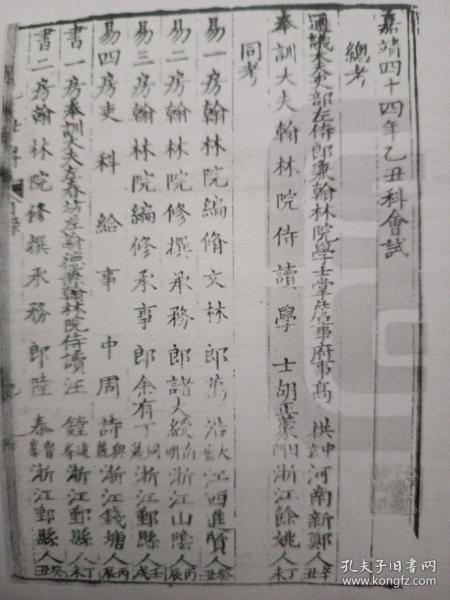 嘉靖四十四年乙丑科會試
總考
通議大夫吏部左侍郎兼翰林院學士掌詹事府事高 拱中玄河南新鄭人辛丑
奉訓大夫翰林院侍讀學士胡正蒙浙江餘姚人丁未
同考
易一房翰林院編脩文林郎萬浩江西進賢人癸丑
易二房翰林院修撰承務郎諸大綬南明浙江山陰人丙辰
易三房翰林院編修承事郎余有丁同麓浙江鄞縣人壬戌
易四房吏科給事中周詩與鹿浙江錢塘人丙辰
書一房奉訓大夫左春坊左諭德兼翰林院侍讀汪鏜遠峯浙江鄞縣人丁未
書二房翰林院修撰承務郎陸 泰浙江鄞縣人癸丑
孔夫子旧书网